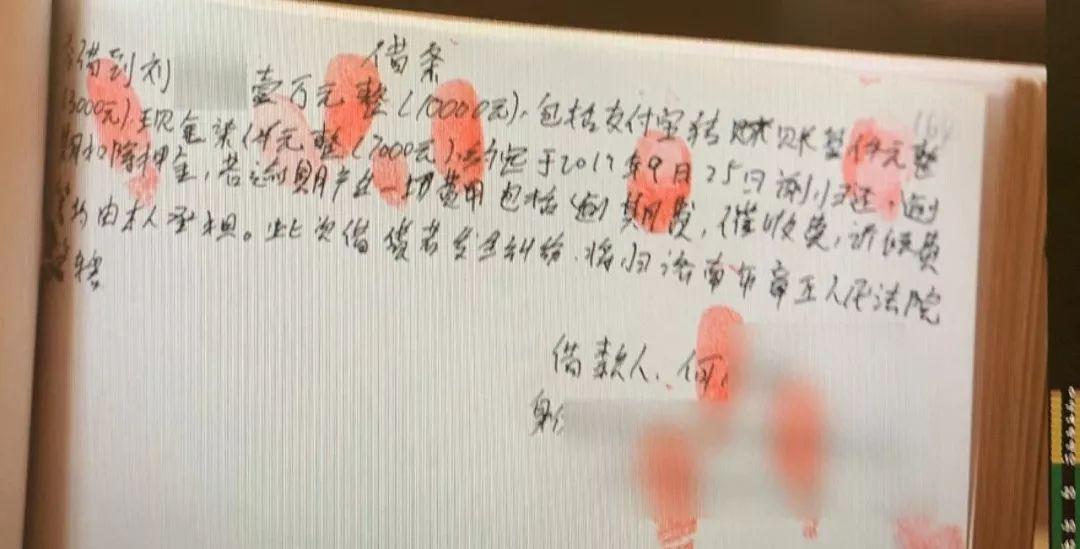 借条
借到刘 壹万元整(10000元),包括支付宝转账叁仟元整
(3000元).现金柒仟元整(7000元).于2017年9月25日前归还,逾
期扣除押金,若逾期产生一切费用包括逾期费,催收费,诉讼费
等均由本人承担。此次借债若发生纠纷,将归济南市章丘人民法院
管辖
借款人、何
身